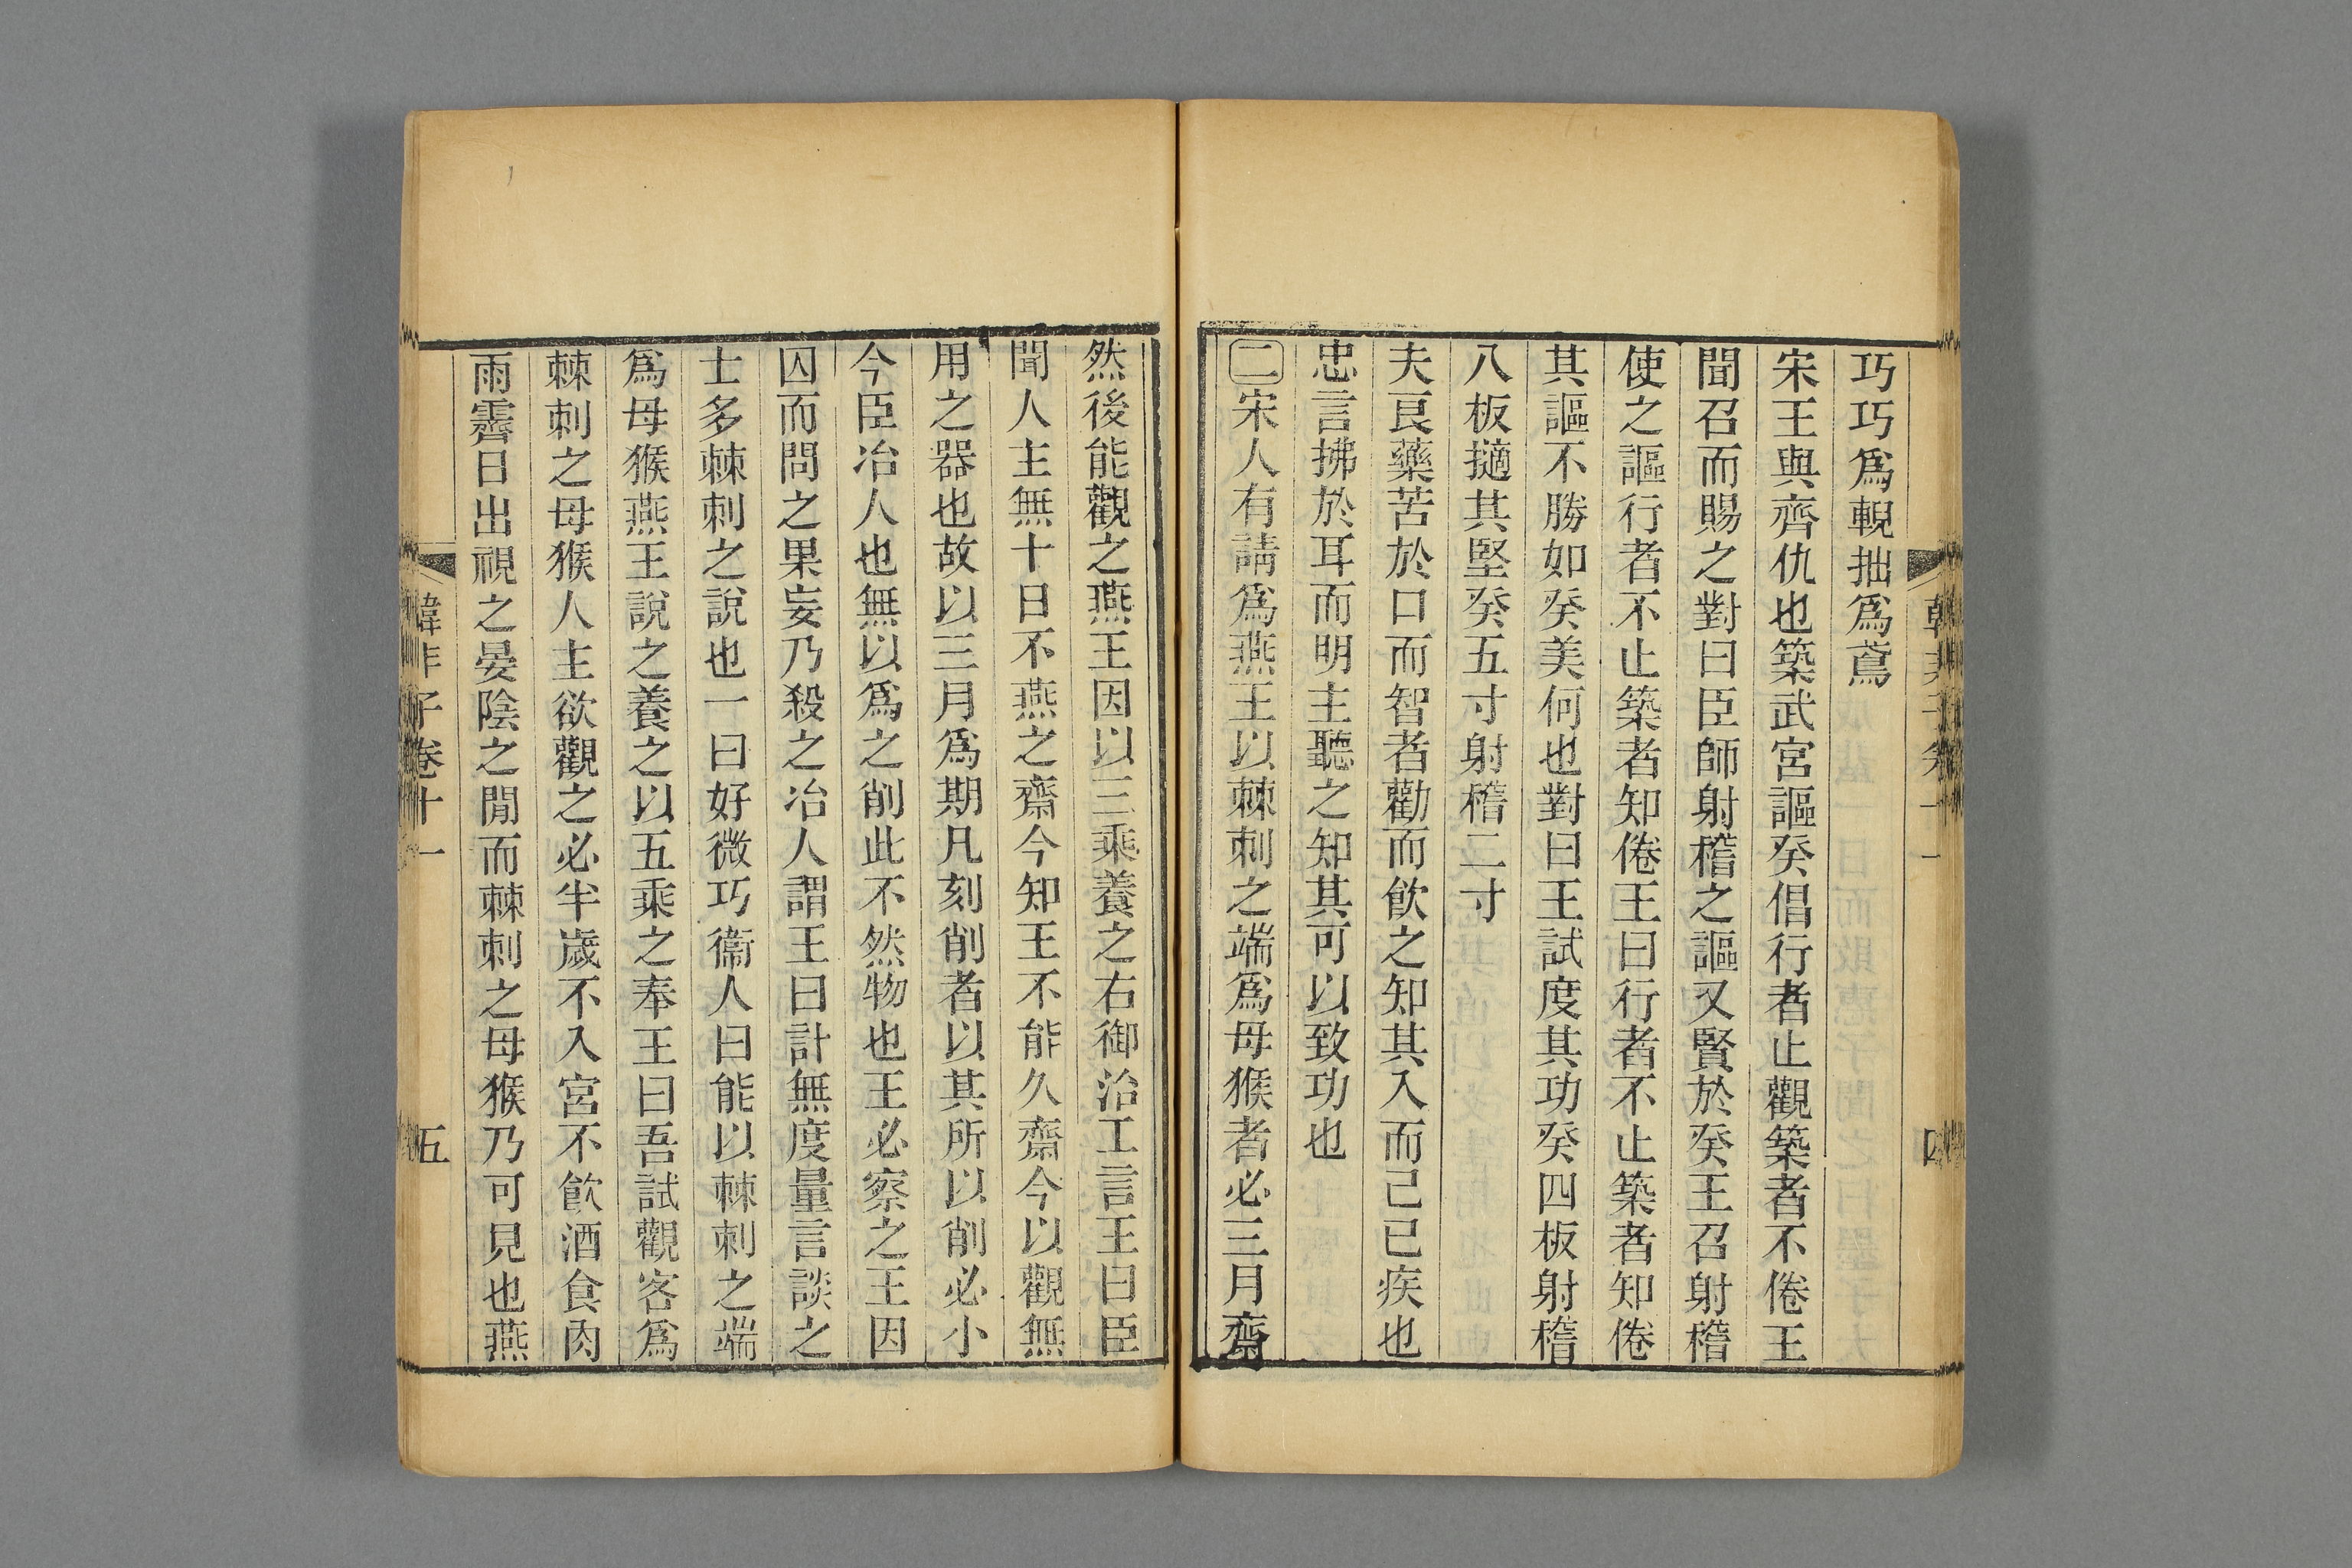 巧巧爲輗拙爲鳶
宋王與齊仇也築武宮謳癸倡行者止觀築者不倦王
聞召而賜之對曰臣師射稽之謳又賢於癸王召射稽
使之謳行者不止築者知倦王曰行者不止築者知倦
其謳不勝如癸美何也對曰王試度其功癸四板射稽
八板擿其堅癸五寸射稽二寸
夫良藥苦於口而智者勸而飮之知其入而己已疾也
忠言拂於耳而明主聽之知其可以致功也
二宋人有請爲燕王以棘刺之端爲母猴者必三月齋
然後能觀之燕王因以三乘養之右御治工言王曰臣
聞人主無十日不燕之齋今知王不能久齋今以觀無
用之器也故以三月爲期凡刻削者以其所以削必小
今臣冶人也無以爲之削此不然物也王必察之王因
囚而問之果妄乃殺之冶人謂王曰計無度量言談之
士多棘刺之說也一曰好微巧衞人曰能以棘刺之端
爲母猴燕王說之養之以五乘之奉王曰吾試觀客爲
棘刺之母猴人主欲觀之必半歲不入宮不飮酒食肉
雨霽日出視之晏陰之閒而棘刺之母猴乃可見也燕
韓非子卷十一
五